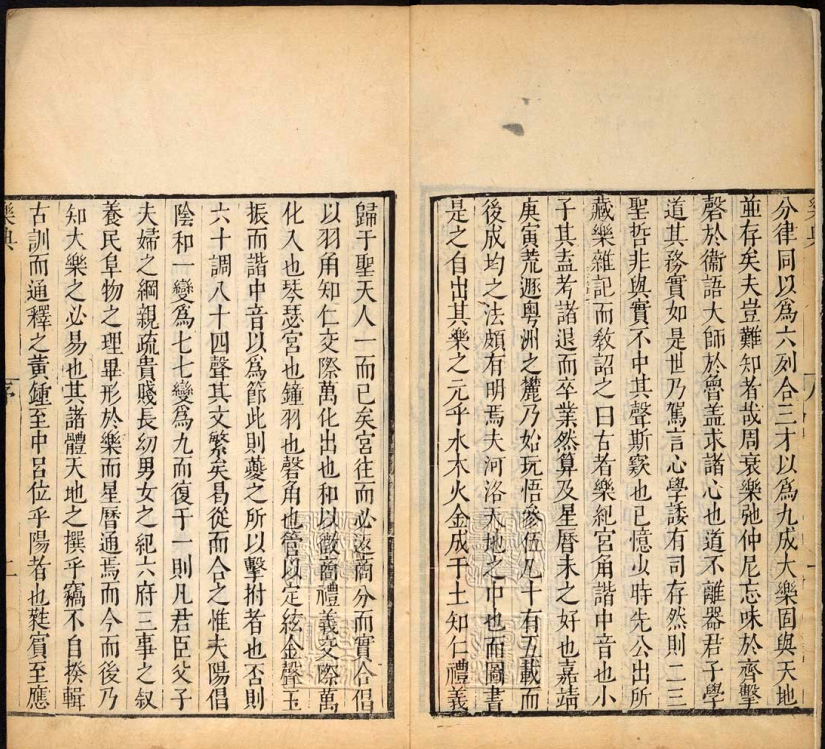 分律同以爲六列合三才以爲九成大樂固與天地
並存矣夫豈難知者哉周衰樂弛仲尼忘味於齊擊
磬於衞語大師於魯盖求諸心也道不離器君子學
道其務實如是世乃駕言心學諉有司存然則二三
聖哲非與實不中其聲斯窾也已憶少時先公出所
藏樂雜記而敎詔之曰古者樂紀宮角諧中音也小
子其盍考諸退而卒業然算及星曆未之好也嘉靖
庚寅荒遯粤洲之麓乃始玩悟參伍凡十有五載而
後成均之法頗有明焉夫河洛天地之中也而圖書
是之自出其樂之元乎水木火金成于土知仁禮義
歸于聖天人一而已矣宮往而必返商分而實合倡
以羽角知仁交際萬化出也和以徵商禮義交際萬
化入也琴瑟宮也鐘羽也磬角也管以定絃金聲玉
振而諧中音以爲節此則夔之所以擊拊者也否則
六十調八十四聲其文繁矣曷從而合之惟夫陽倡
陰和一變爲七七變爲九而復于一則凡君臣父子
夫婦之綱親疏貴賤長幼男女之紀六府三事之叙
養民阜物之理畢形於樂而星曆通焉而今而後乃
知大樂之必易也其諸體天地之撰乎竊不自揆輯
古訓而通釋之黃鍾至中呂位乎陽者也蕤賓至應
樂典
序
二